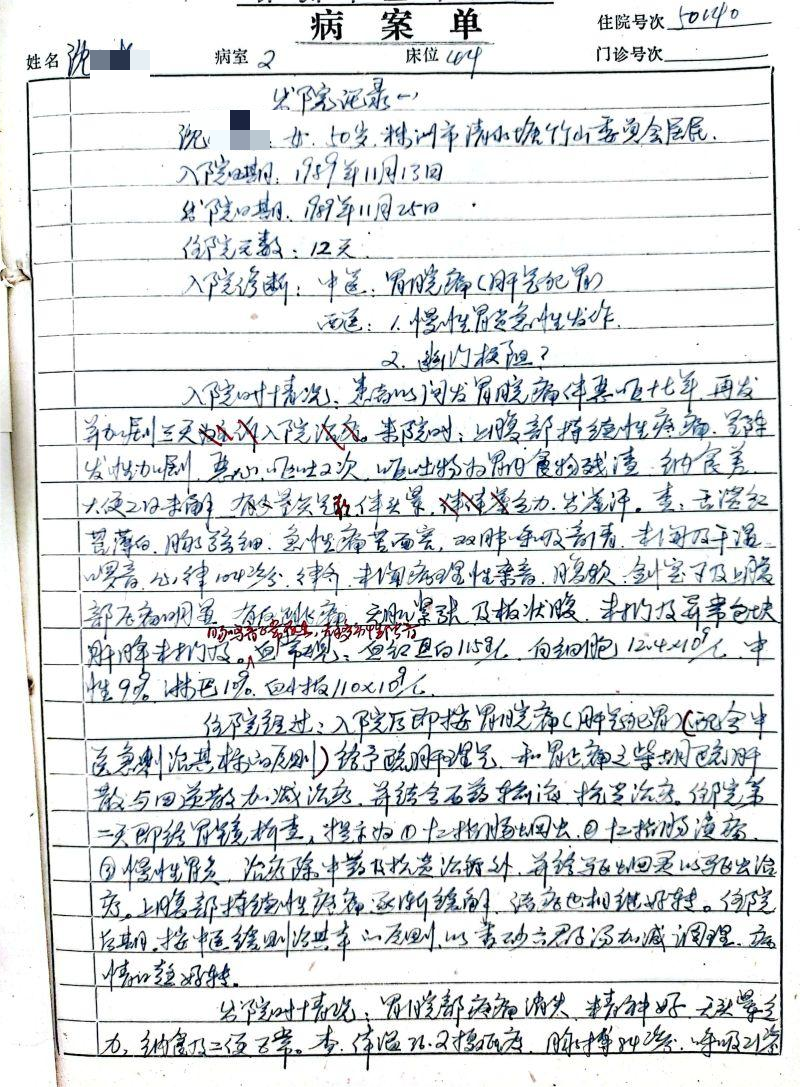 病案单
住院号次 50140
姓名 沈 病室 2 床位 44 门诊号次
出院记录(一)
沈 女 50岁 株洲市清水塘竹山委员会居民
入院日期:1989年11月13日
出院日期:1989年11月25日
住院天数:12天
入院诊断:中医:胃脘痛(肝气犯胃)
西医:1.慢性胃炎急性发作
2.幽门梗阻?
入院时情况:患者以间发胃脘痛伴要呕十七年,再发
并加剧三天 入院治疗。来院时:上腹部持续性疼痛,呈阵
发性加剧,恶心,呕吐2次,呕吐物为胃内食物残渣,纳食差,
大便2日未解, 伴头晕, 乏力,出盗汗。查:舌淡红
苔薄白,脉弦细,急性痛苦面容,双肺呼吸音清,未闻及干湿
啰音,心律104次/分,律齐,未闻病理性杂音,腹软,剑突下及上腹
部压痛明显,有反跳痛, 肌紧张及板状腹,未扪及异常包块
肝脾未扪及。血常规:血红蛋白115g/L,白细胞12.4×10⁹/L,中
性9%,淋巴1%,血小板110×10⁹/L
住院经过:入院后即按胃脘痛(肝气犯胃)(配合中
医急则治其标的原则)给予疏肝理气,和胃止痛之柴胡疏肝
散与四逆散加减治疗,并结合西药输液,抗炎治疗。住院第
二天即经胃镜检查,提示为①十二指肠 ②十二指肠溃疡
③慢性胃炎,治疗除中药及抗炎治疗外,并给 治
疗。上腹部持续性疼痛逐渐缓解,诸症也相继好转。住院
后期,按中医缓则治其本的原则,以香砂六君子汤加减调理,病
情 好转。
出院时情况:胃脘部疼痛消失,精神好,无头晕乏
力,纳食及二便正常。查:体温36.2摄氏度,脉搏84次/分,呼吸21次